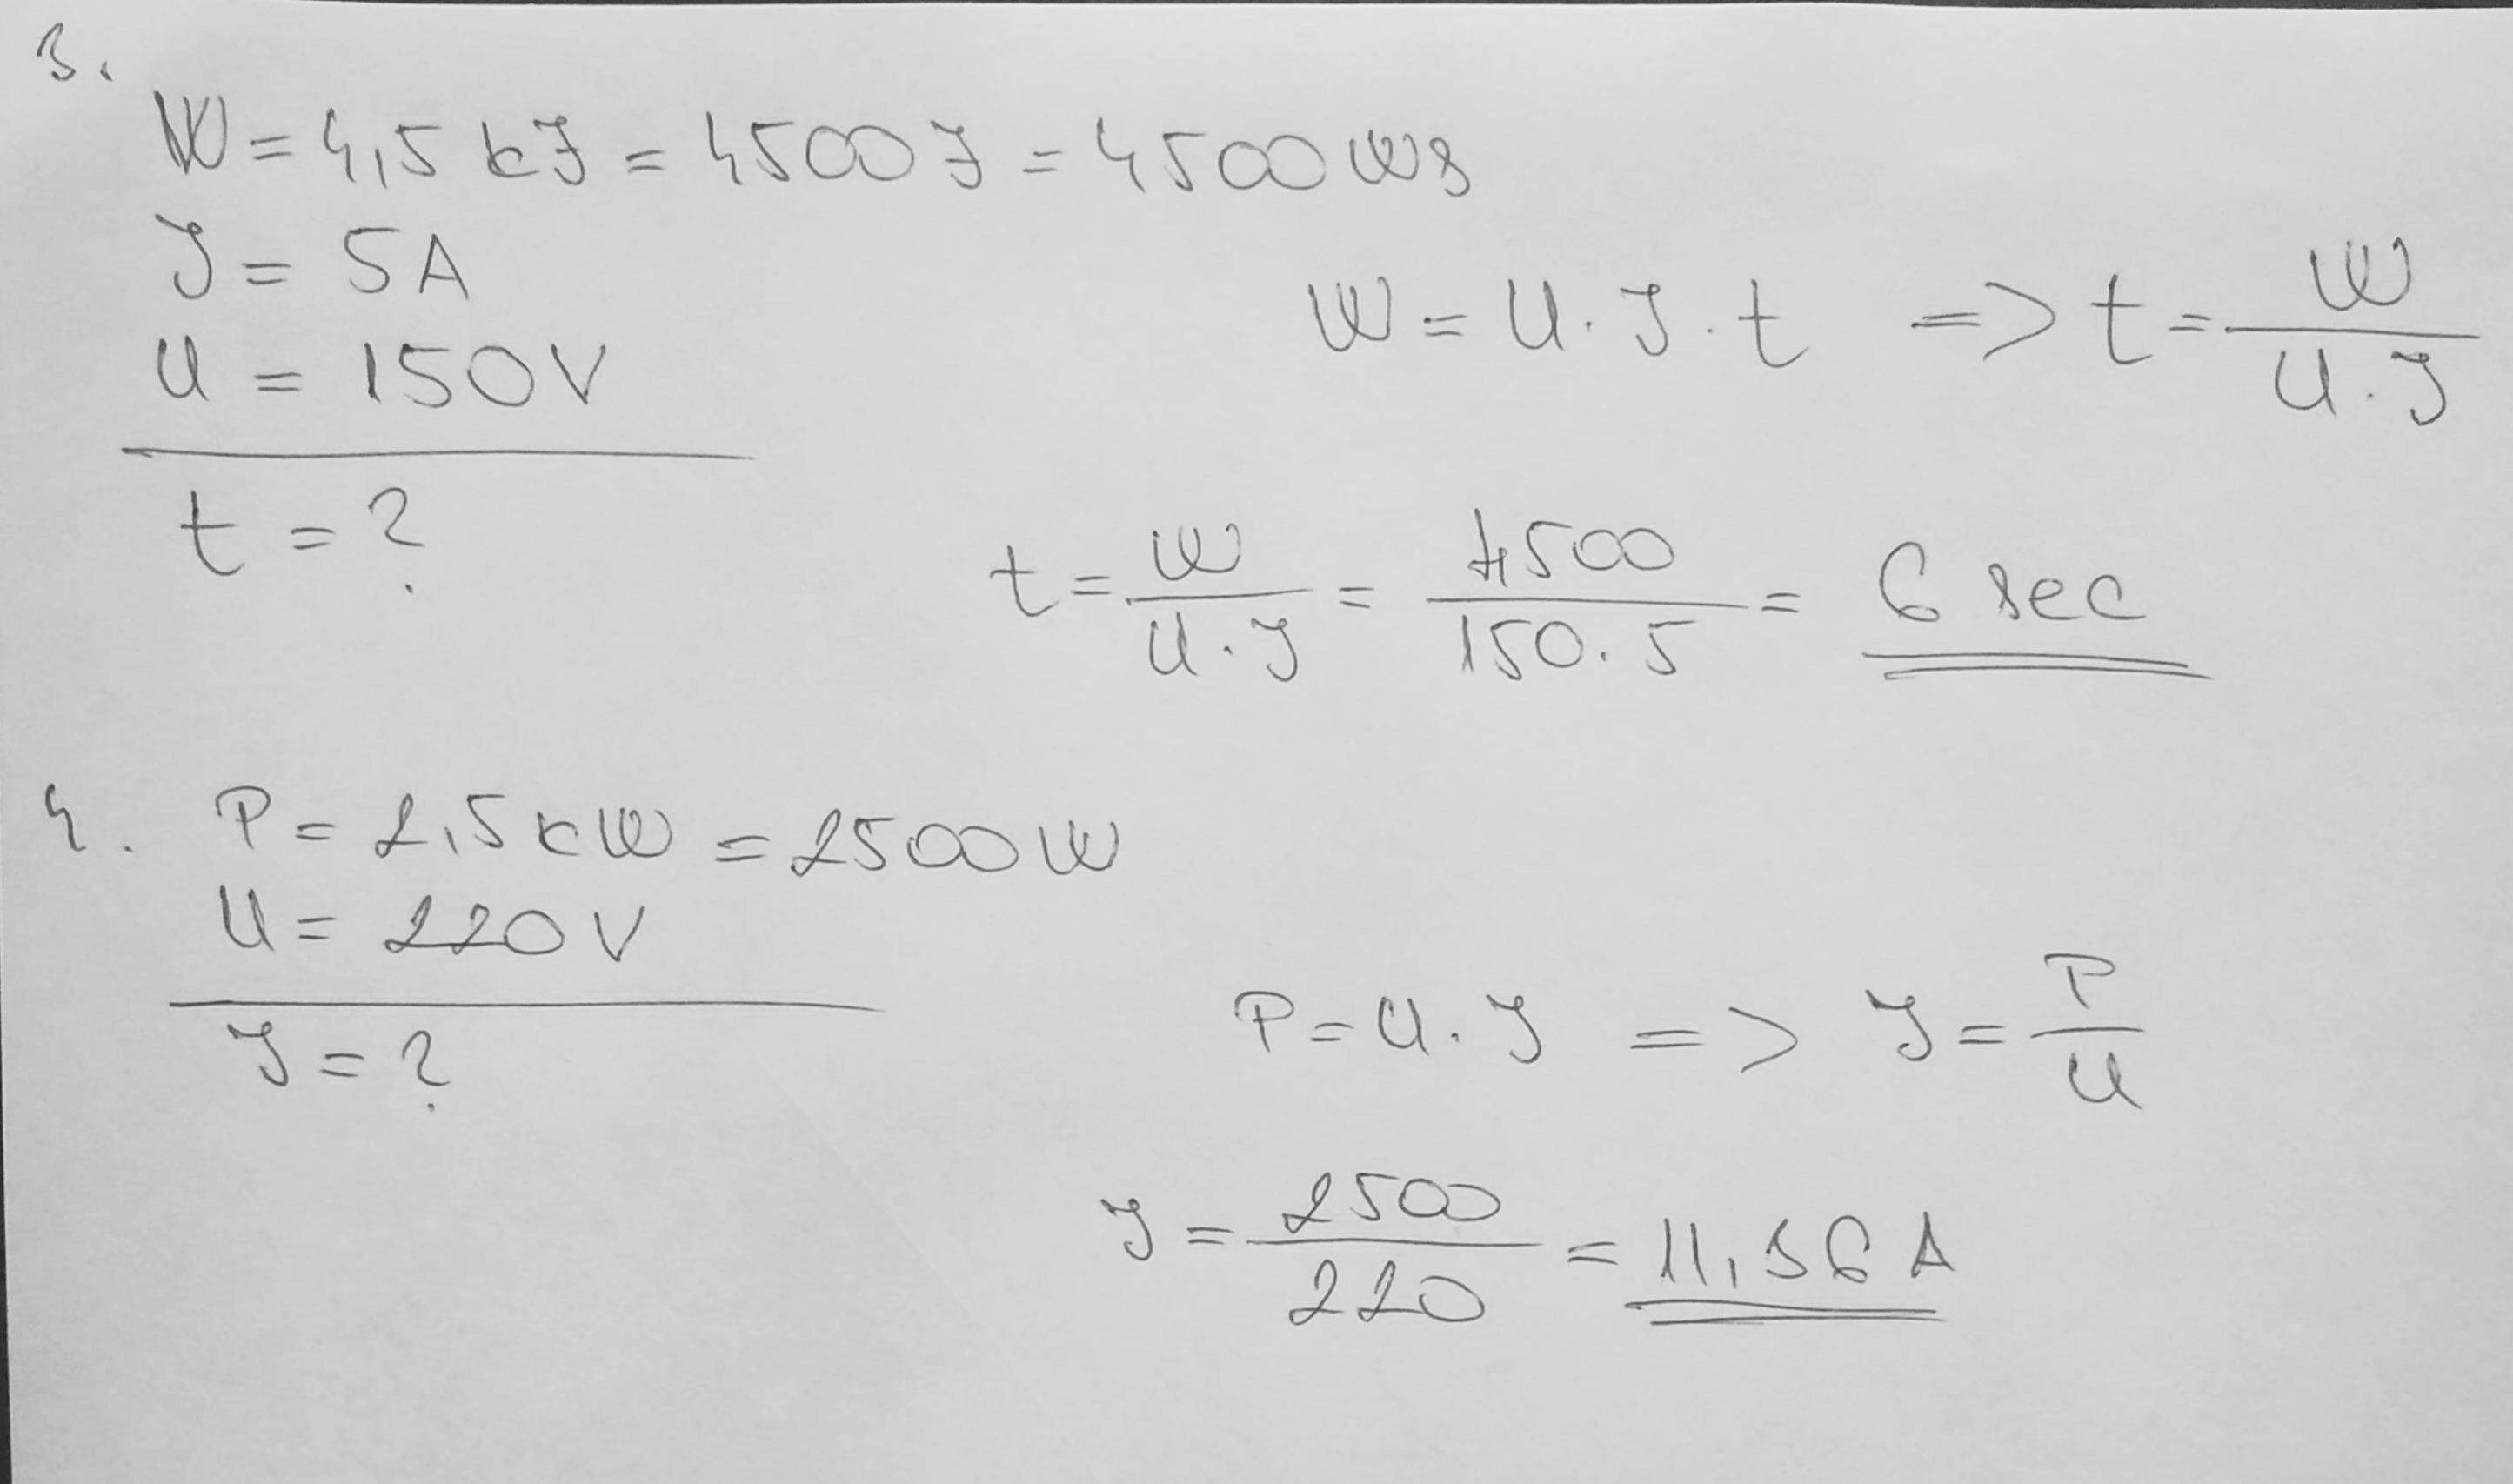 3.
W = 4,5 kJ = 4500 J = 4500 Ws
I = 5A
U = 150V
W = U . I . t => t = W / U . I
t = ?
t = W / U . I = 4500 / 150 . 5 = 6 sec
4. P = 2,5 kW = 2500 W
U = 220 V
P = U . I => I = P / U
I = ?
I = 2500 / 220 = 11,36 A